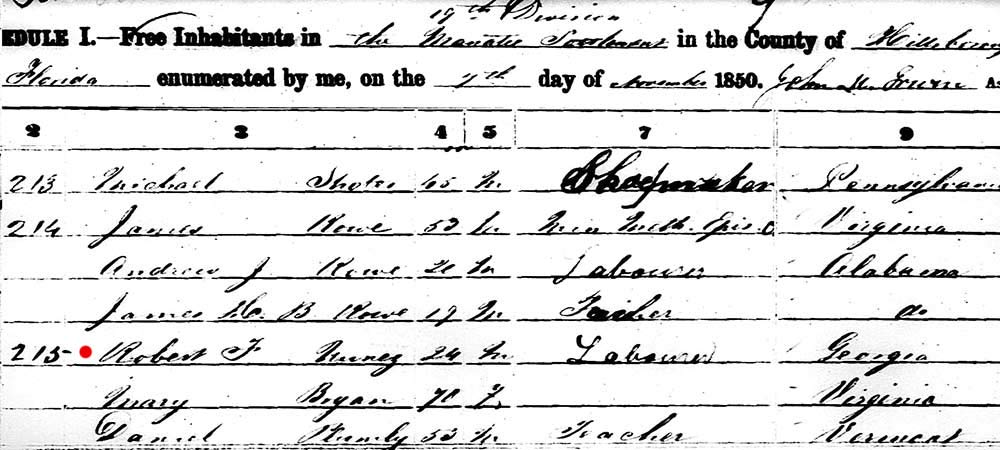 19th Division
EDULE I.—Free Inhabitants in the Manatee Settlement in the County of Hillsboroug
Florida enumerated by me, on the 7th day of November 1850. John M. As
2 3 4 5 7 9
213 Michael 45 M Shoemaker Pennsylvani
214 James Rowe 53 M Min Meth. Epis. C Virginia
Andrew J Rowe 20 M Labourer Alabama
James B Rowe 19 M Do
215 Robert F Nunez 24 M Labourer Georgia
Mary Bryan 70 F Virginia
Daniel 53 M Teacher Vermont